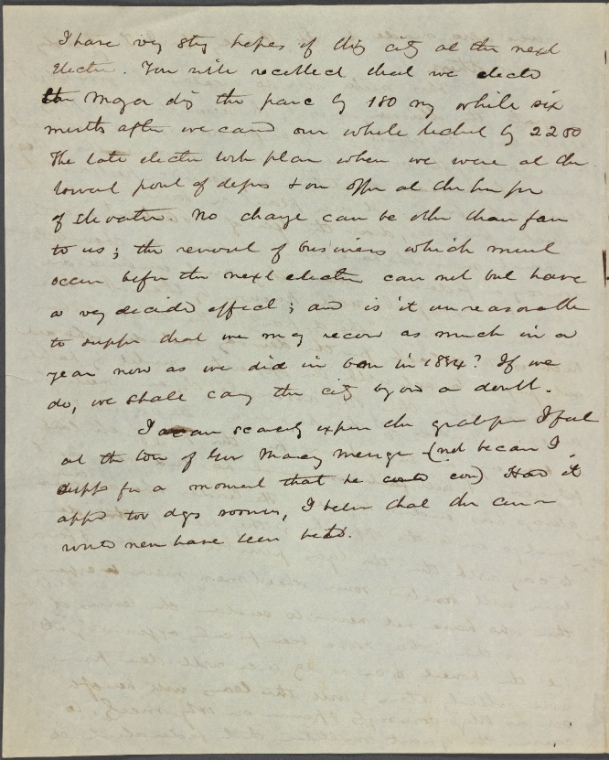 I have very strg hopes of this city at the next
election. You will recollect that we elected
the Mayor dg the panc by 180 my while six
months after we carrd our whole ticket by 2200
The late election took place when we were at the
lowest point of depres & our
of elevation. No change can be other than favr
to us; the revival of business which must
occur before the next election can not but have
a very decided effect; and is it unreasonable
to suppose that we may recover as much in a
year now as we did in 6 m in 1834? If we
do, we shall carry the city beyond a doubt.
I can scarcely express the I feel
at the tone of Gov Marcy message (not because I
suppose for a moment that he could err) Had it
appd two days sooner, I believe that the
would never have been